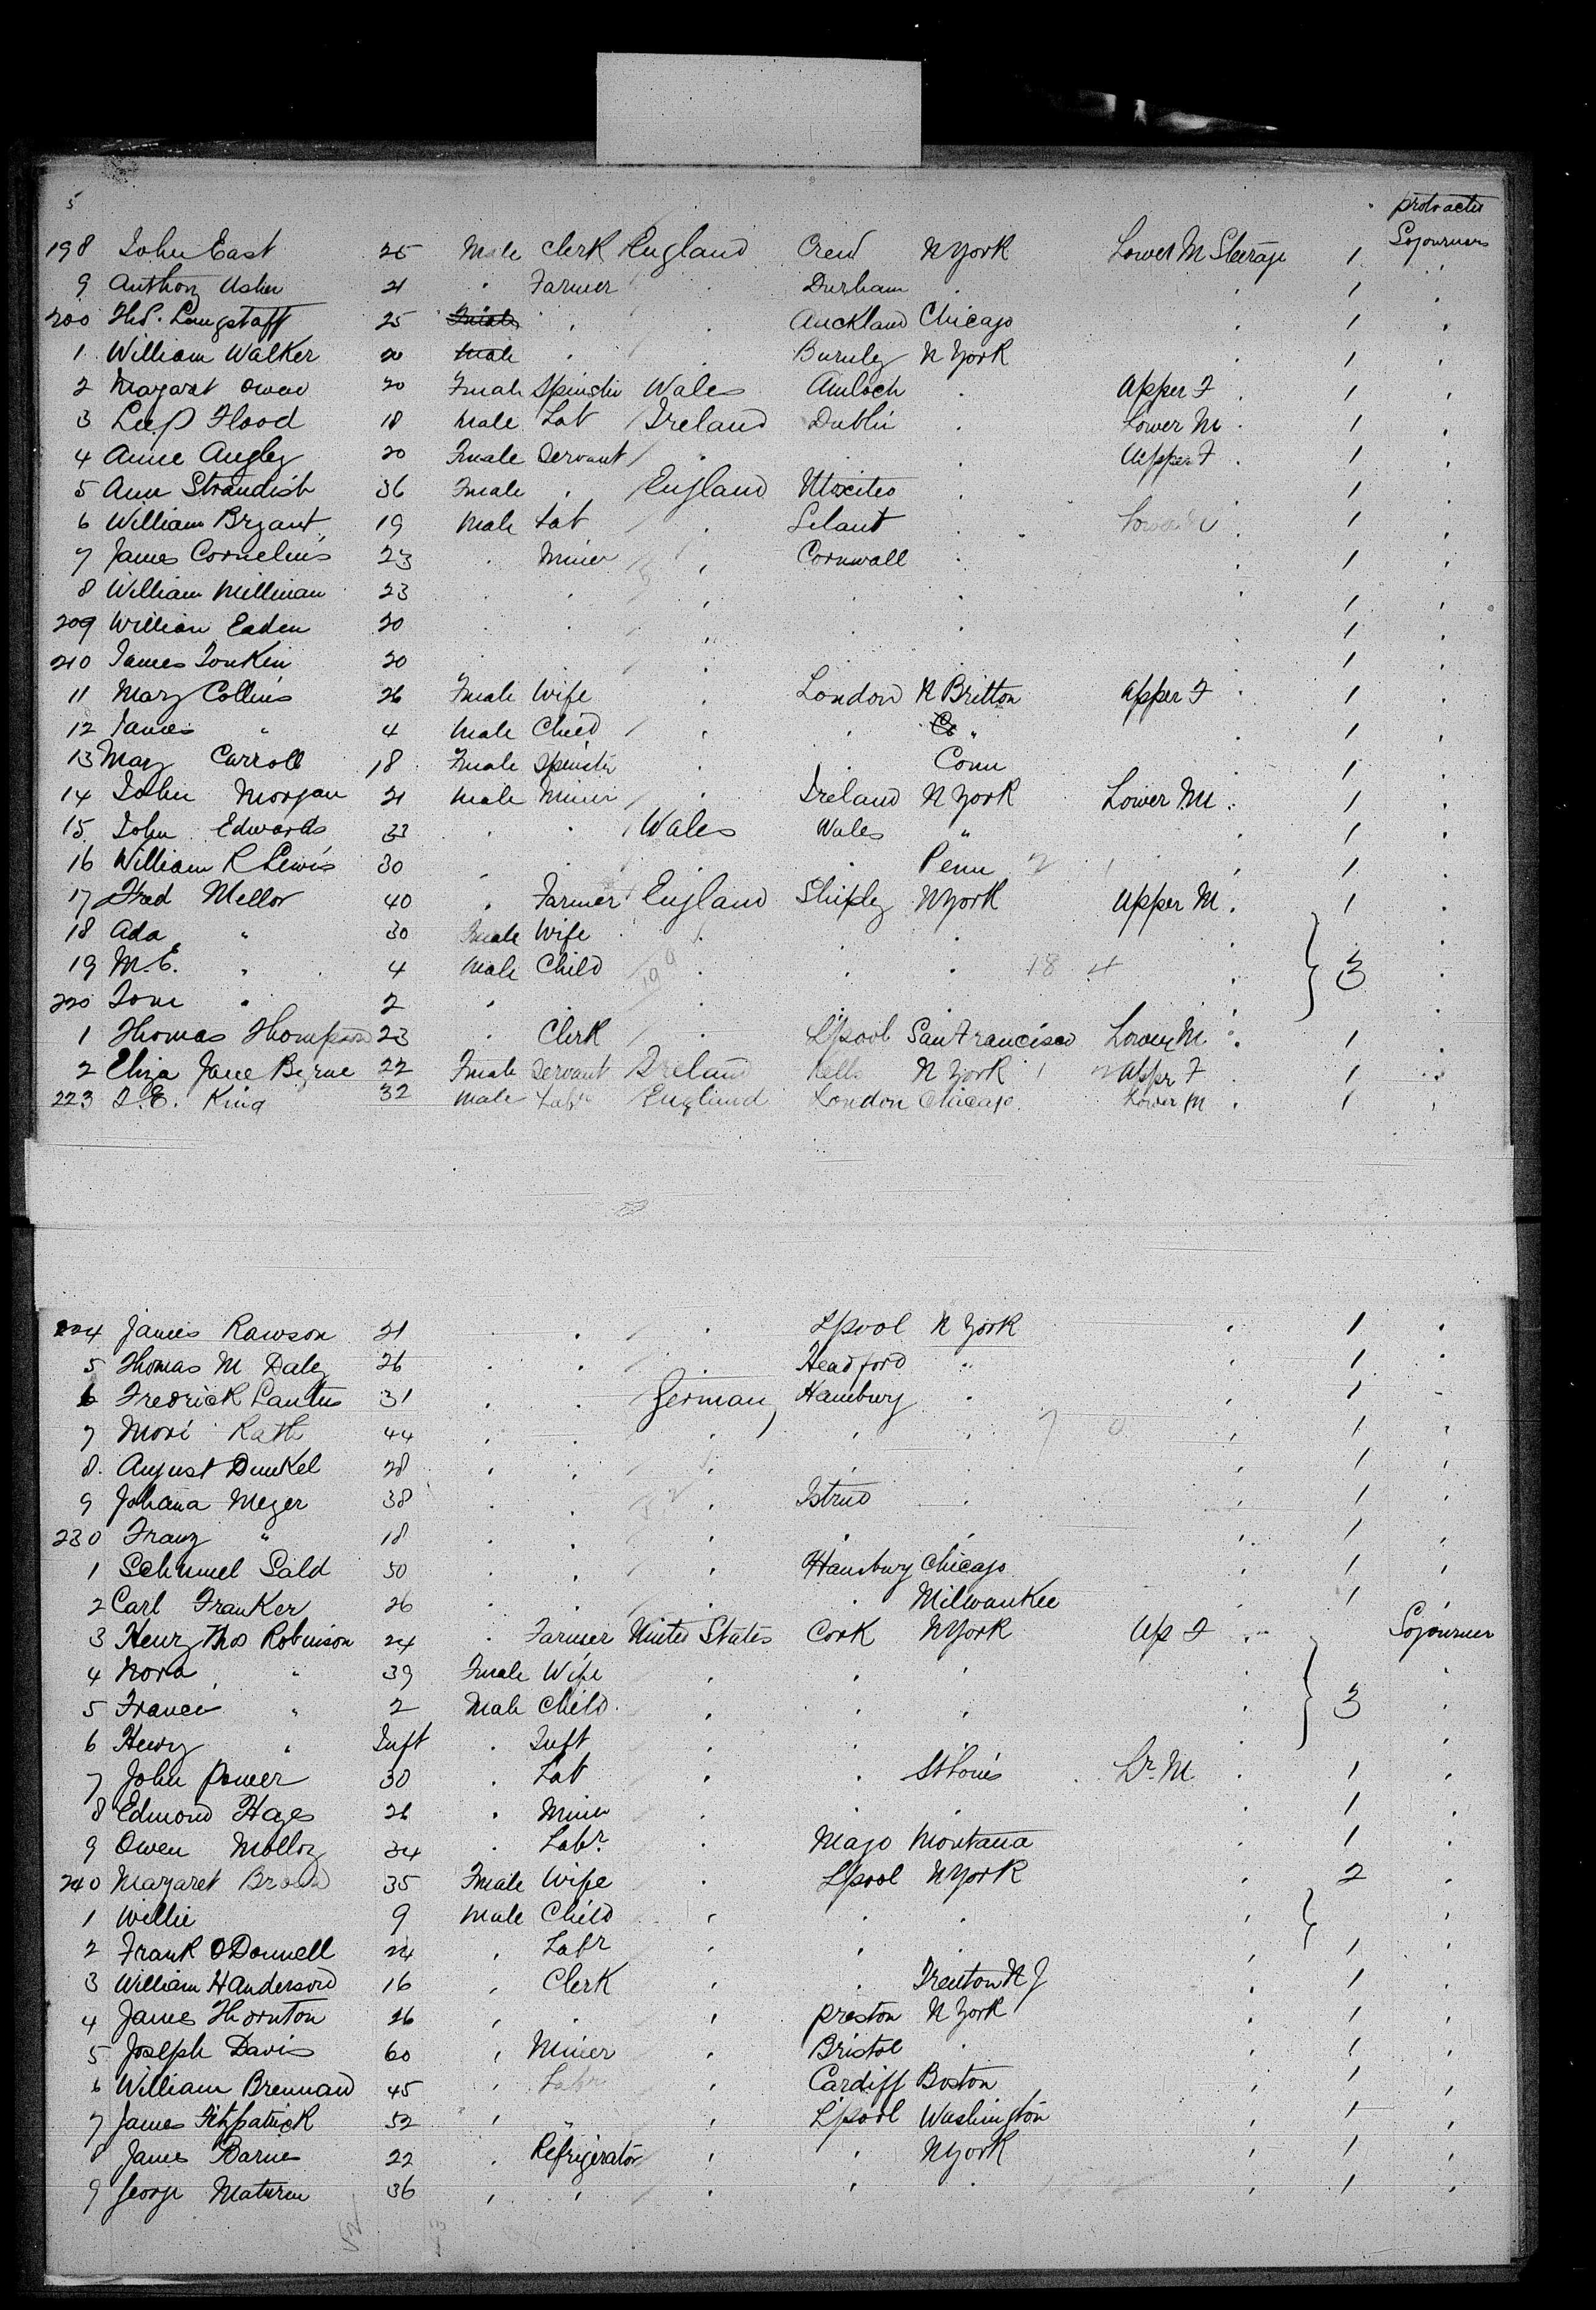 5
protracted
198 John East 25 Male Clerk England Crew N York Lower M Steerage 1 Sojourners
9 Anthony Usher 21 " Farmer Durham 1
200 Thos. Langstaff 25 Auckland Chicago 1
1 William Walker 20 Male Burnley N York 1
2 Margaret Owen 20 Fmale Spinster Wales Amloch Upper F 1
3 Flood 18 Male Lab Ireland Dublin Lower M 1
4 Annie Angley 20 Fmale Servant Upper F 1
5 Ann Strandish 36 Fmale England 1
6 William Bryant 19 Male Lab Lelant 1
7 James Cornelius 23 Miner Cornwall 1
8 William Milliman 23 1
209 William Eaden 20 1
210 James Tonkin 20 1
11 Mary Collins 26 Fmale Wife London N Britton Upper F 1
12 James " 4 Male Child " 1
13 Mary Carroll 18 Fmale Spinster Conn 1
14 John Morgan 21 Male Miner Ireland N York Lower M 1
15 John Edwards 33 Wales Wales " 1
16 William R Lewis 30 Penn 1
17 Fred Mellor 40 Farmer England Shipley N York Upper M. 1
18 Ada " 30 Fmale Wife
19 M.E. " 4 Male Child 18 4 3
220 Tom " 2
1 Thomas Thompson 23 Clerk L'pool San Francisco Lower M 1
2 Eliza Jane Byrne 22 Fmale Servant Ireland Kells N York Uppr F 1
223 J.E. King 32 Male Labr England London Chicago Lower M 1
224 James Rawson 21 L pool N York 1
5 Thomas M Daly 26 Headford " 1
6 Fredrick Lantus 31 Germany Hamburg 1
7 Mori Rath 44 1
8. August Dunkel 28 1
9 Johana Meyer 38 1
230 Franz " 18 1
1 Schumel Sald 50 Hamburg Chicago 1
2 Carl Franker 26 Milwaukee 1
3 Henry Thos Robinson 24 Farmer United States Cork N York Up F Sojourner
4 Nora " 39 Fmale Wife
5 Francis " 2 Male Child 3
6 Henry " Inft Inft
7 John Power 30 Lab St Louis Lr. M 1
8 Edmond Hayes 26 Miner 1
9 Owen Molloy 34 Labr. Mayo Montana 1
240 Margaret Brown 35 Fmale Wife L pool N York 2
1 Willie 9 Male Child
2 Frank O Donnell 24 Labr 1
3 William H Anderson 16 Clerk Trenton N J 1
4 James Thornton 26 Preston N York 1
5 Joseph Davis 60 Miner Bristol 1
6 William Brennan 45 Labr Cardiff Boston 1
7 James Fitzpatrick 52 " L'pool Washington 1
8 James Barnes 22 Refrigerator N York 1
9 George Maturin 36 1